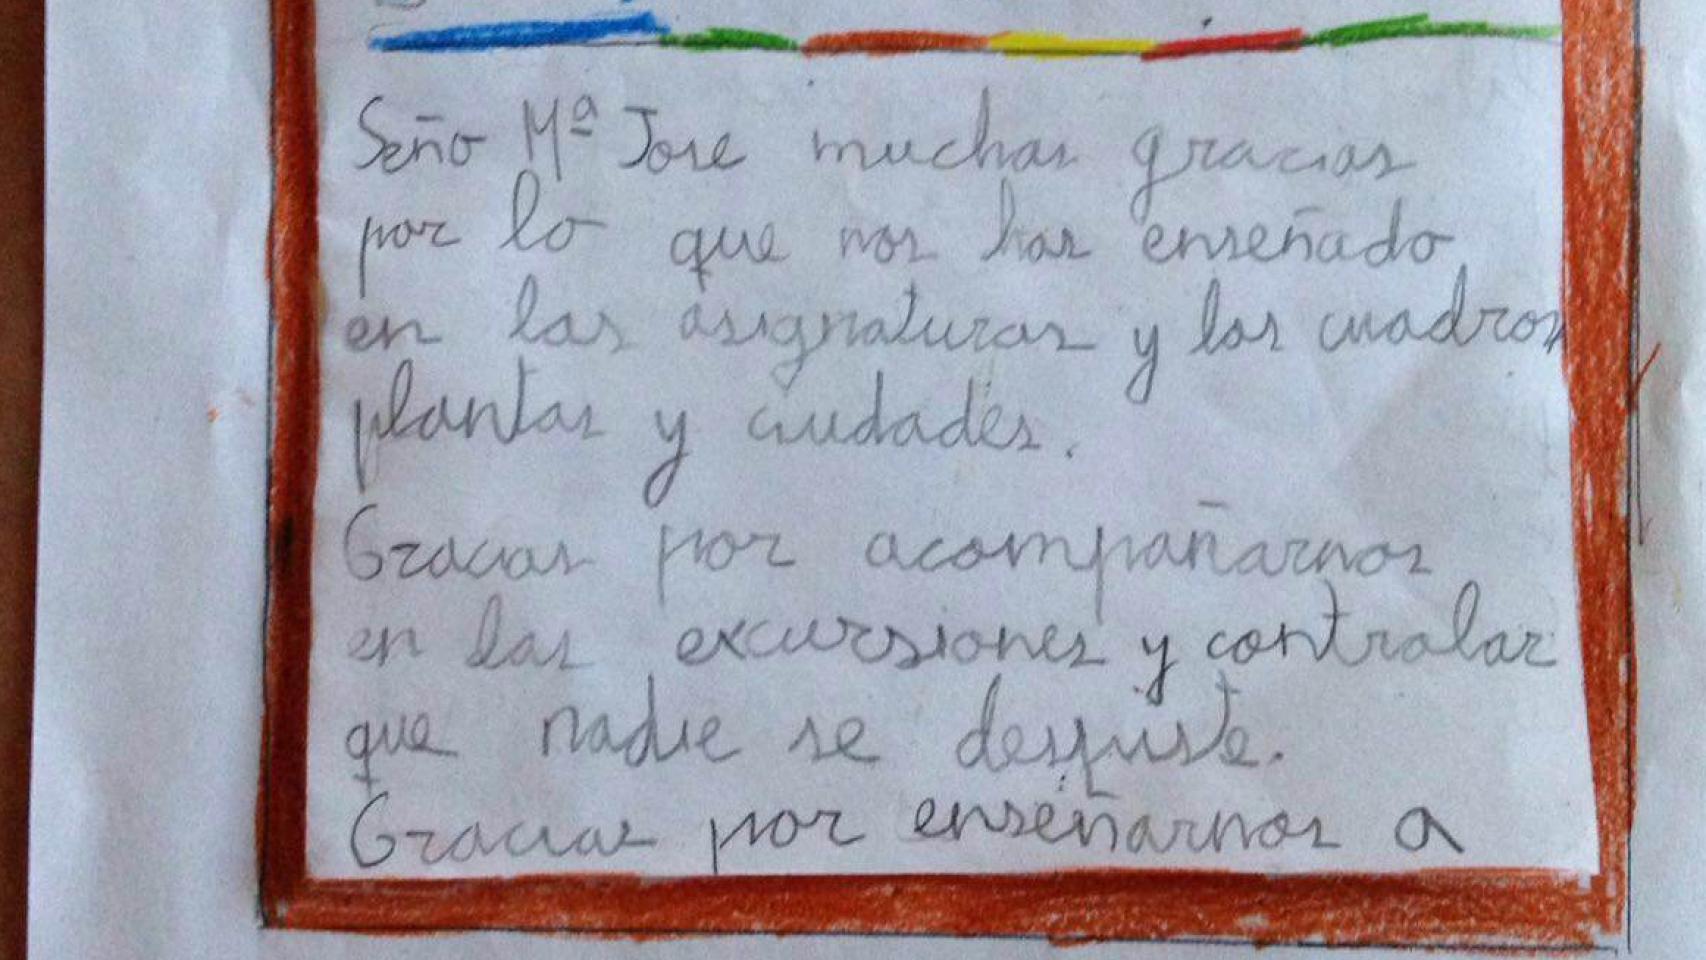 Seño Mª Jose muchas gracias
por lo que nos has enseñado
en las asignaturas y los cuadros
plantas y ciudades.
Gracias por acompañarnos
en las excursiones y controlar
que nadie se despiste.
Gracias por enseñarnos a